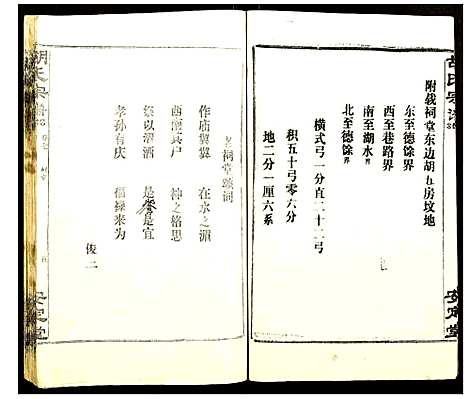 胡氏宗谱
附载祠堂东边胡五房坟地
东至德馀界
西至巷路界
南至湖水界
北至德馀界
横式弓一分直二十二弓
积五十弓零六分
地二分一厘六系
安定堂
祠堂颂词
作庙翼翼 在水之湄
酉 其户 神之格思
祭以清酒 是飨是宜
孝孙有庆 福禄来为
俊二
胡氏宗谱
安定堂